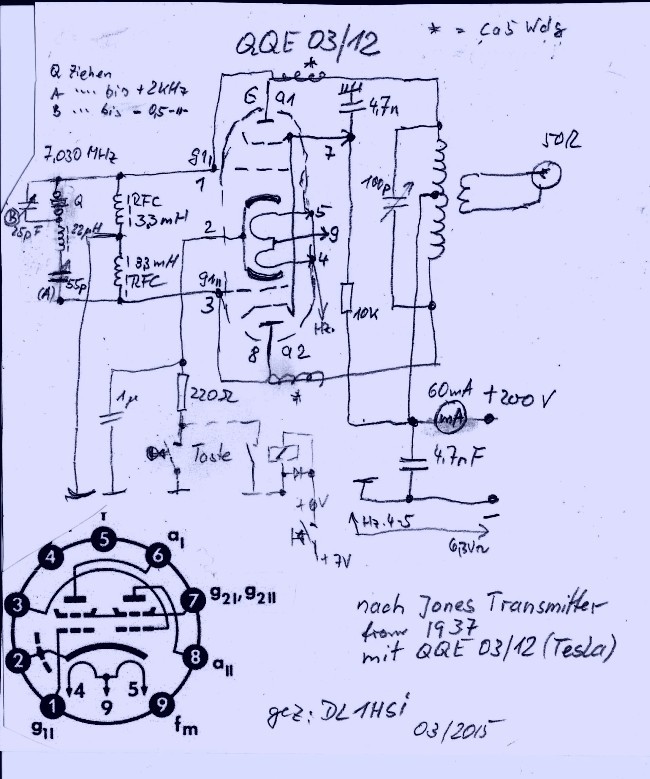 QQE 03/12
* = ca 5 Wdg
Q Ziehen
A " " bis + 2KHz
B " " bis - 0,5 -"-
7,030 MHz
*
6
a1
4,7n
7
50Ω
g1I
1
100p
B
25pF
Q
22µH
RFC
3,3mH
3,3mH
RFC
A
55p
(A)
2
5
9
4
g1II
3
Hz.
10K
8
a2
*
1µ
220Ω
Taste
60mA
mA
+200V
4,7nF
+6V
+7V
Hz. 4-5
6,3V~
1
2
3
4
5
6
7
8
9
aI
g2I, g2II
aII
fm
g1I
4
9
5
nach Jones Transmitter
from 1937
mit QQE 03/12 (Tesla)
gez: DL1HSI
03/2015